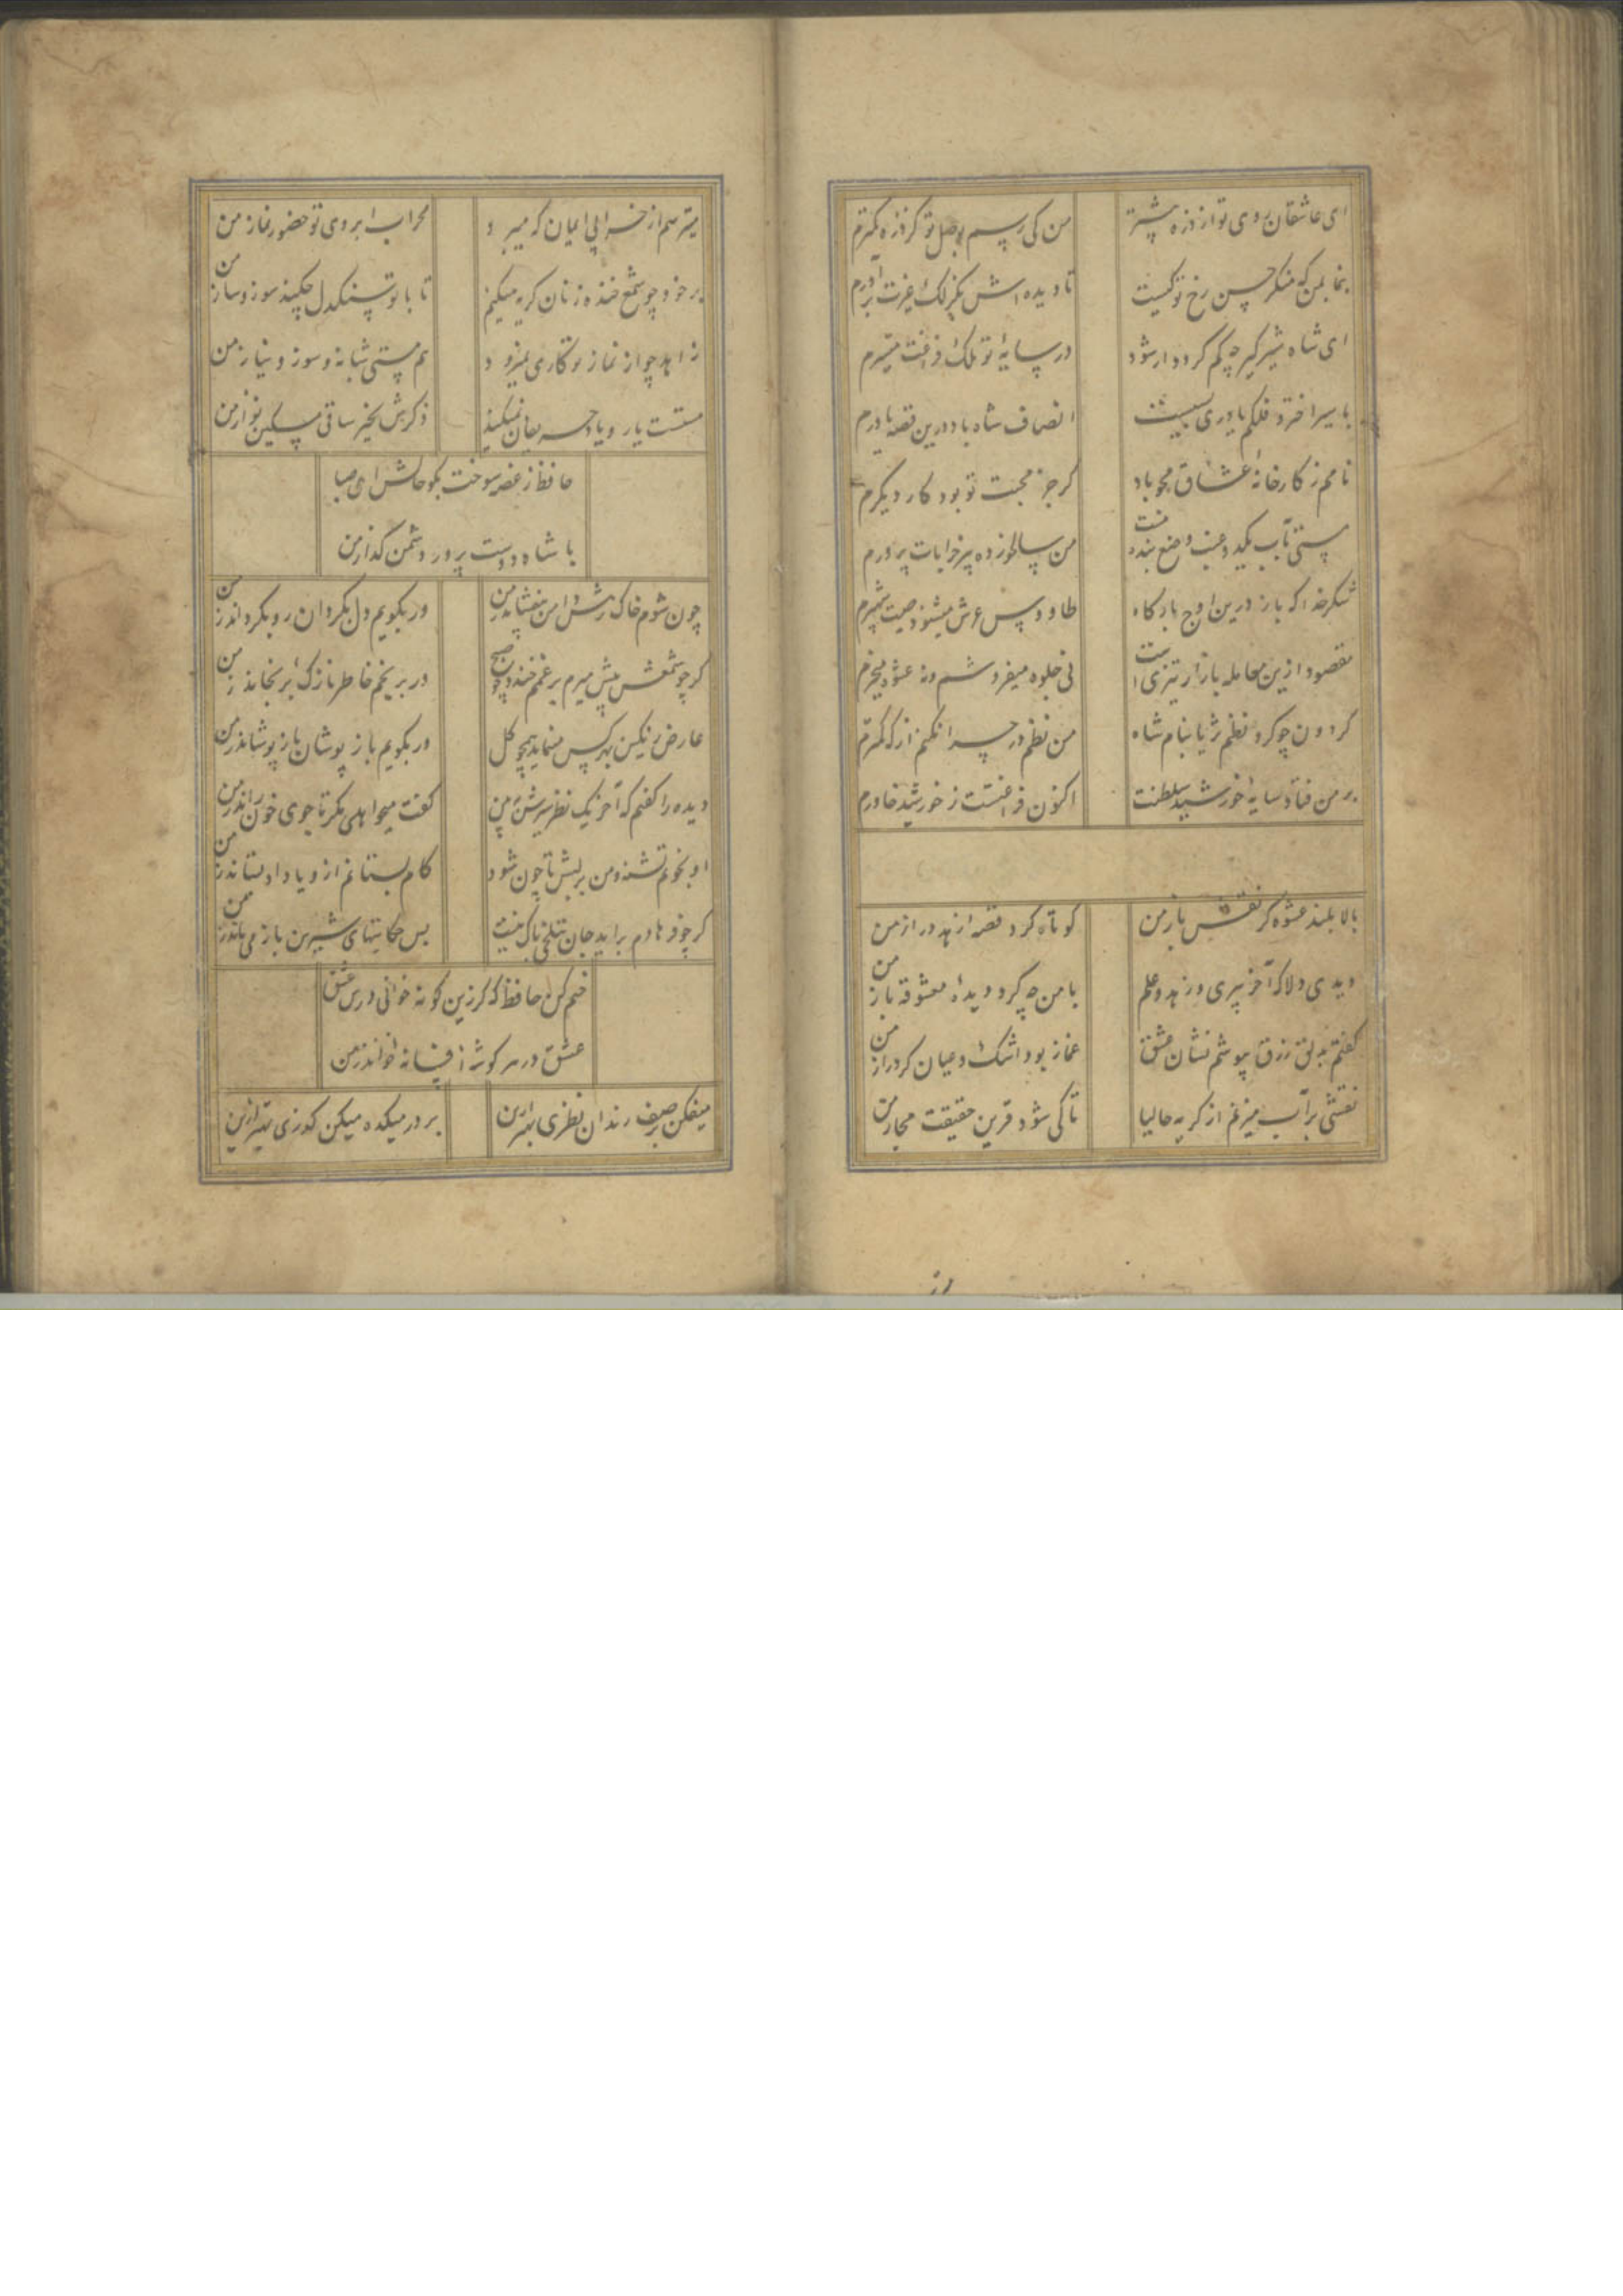 ای عاشقان روی تو از ذره بیشتر من کی رسم بوصل تو کز ذره کمترم
بنما بمن که منکر حسن رخ تو کیست تا دیده اش بکزلک غیرت برآورم
ای شاه شیرگیر چه کم گردد ار شود در سایهٔ تو ملک فراغت میسرم
با سیر اختر و فلکم یاوری بسیست انصاف شاه باد درین قصه یاورم
نامم ز کارخانهٔ عشاق محو باد کر جز محبت تو بود کار دیکرم
مستی بآب یکدو عنب وضع بنده نیست من سالخورده پیر خرابات پرورم
شکر خدا که باز درین اوج بارکاه طاووس عرش میشنود صیت شهپرم
مقصود ازین معامله بازار تیزی است نی جلوه میفروشم و نه عشوه میخرم
کردون چو کرد نظم ثریا بنام شاه من نظم در چرا نکنم از که کمترم
بر من فتاد سایهٔ خورشید سلطنت اکنون فراغتست ز خورشید خاورم
بالا بلند عشوه گر نقش باز من کوتاه کرد قصهٔ زهد دراز من
دیدی دلا که آخر پیری و زهد و علم با من چه کرد دیدهٔ معشوقه باز من
کفتم بدلق زرق بپوشم نشان عشق غماز بود اشک و عیان کرد راز من
نقشی بر آب میزنم از کریه حالیا تا کی شود قرین حقیقت مجاز من
میترسم از خرابی ایمان که میبرد محراب ابروی تو حضور نماز من
بر خود چو شمع خنده زنان کریه میکنم تا با تو سنکدل چکند سوز و ساز من
زاهد چو از نماز تو کاری نمیرود هم مستی شبانه و سوز و نیاز من
مستست یار و یاد حریفان نمیکند ذکرش بخیر ساقی مسکین نواز من
حافظ ز غصه سوخت بکو حالش ای صبا
با شاه دوست پرور دشمن کداز من
چون شوم خاک رهش دامن بیفشاند ز من ور بکویم دل بکردان رو بکرداند ز من
کر چو شمعش پیش میرم بر غمم خندد چو صبح ور برنجم خاطر نازک برنجاند ز من
عارض رنکین بهر کس مینماید همچو کل ور بکویم باز پوشان باز پوشاند ز من
دیده را کفتم که آخر یک نظر سیرش ببین کفت میخواهی مکر تا جوی خون راند ز من
او بخونم تشنه و من بر لبش تا چون شود کام بستانم ازو یا داد بستاند ز من
کر چو فرهادم برآید جان بتلخی باک نیست بس حکایتهای شیرین باز می ماند ز من
ختم کن حافظ که کر زین کونه خوانی درس عشق
عشق در هر کوشهٔ افسانهٔ خواند ز من
میفکن بر صف رندان نظری بهتر ازین بر در میکده میکن کذری بهتر ازین